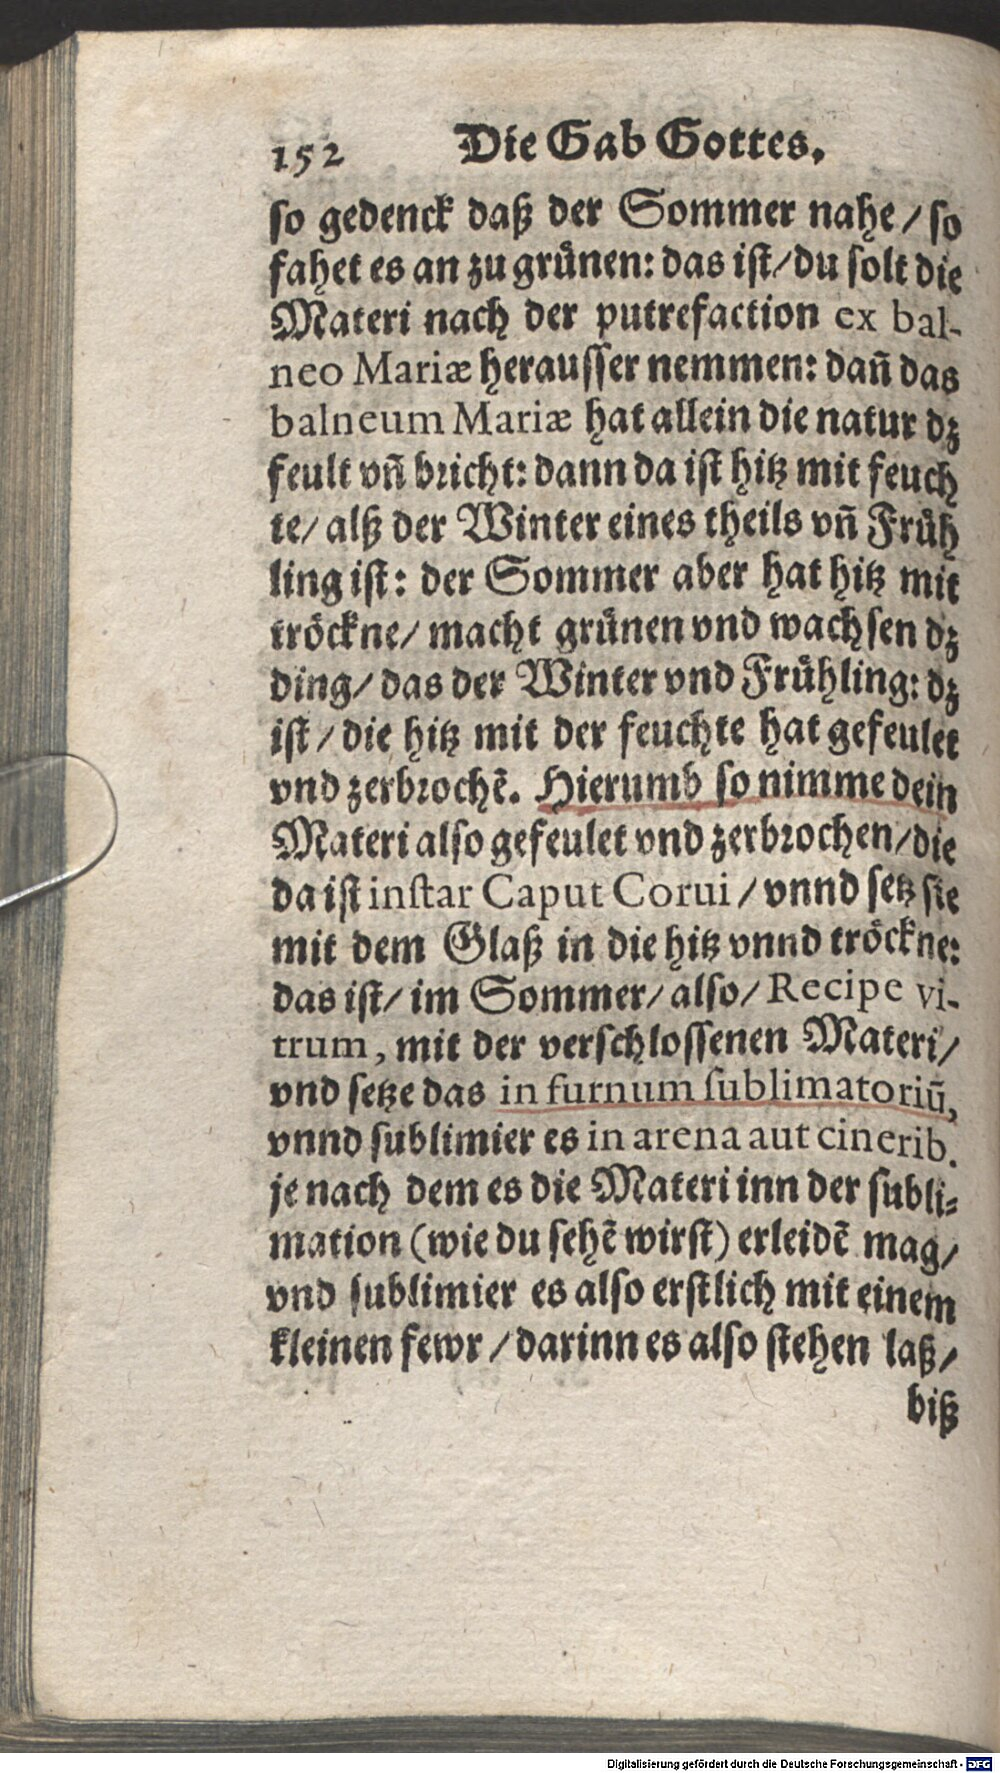 152 Die Gab Gottes.
so gedenck daß der Sommer nahe/so
fahet es an zu gruͤnen: das ist/du solt die
Materi nach der putrefaction ex bal-
neo Mariæ herausser nemmen: dañ das
balneum Mariæ hat allein die natur dz
feult vñ bricht: dann da ist hitz mit feuch
te/ alß der Winter eines theils vñ Fruͤh
ling ist: der Sommer aber hat hitz mit
troͤckne/ macht gruͤnen vnd wachsen dz
ding/ das der Winter vnd Fruͤhling: dz
ist/ die hitz mit der feuchte hat gefeulet
vnd zerbrochẽ. Hierumb so nimme dein
Materi also gefeulet vnd zerbrochen/die
da ist instar Caput Corui/ vnnd setz sie
mit dem Glaß in die hitz vnnd troͤckne:
das ist/ im Sommer/ also/ Recipe vi-
trum, mit der verschlossenen Materi/
vnd setze das in furnum sublimatoriũ,
vnnd sublimier es in arena aut cinerib.
je nach dem es die Materi inn der subli-
mation (wie du sehẽ wirst) erleidẽ mag/
vnd sublimier es also erstlich mit einem
kleinen fewr/ darinn es also stehen laß/
biß
Digitalisierung gefördert durch die Deutsche Forschungsgemeinschaft - DFG